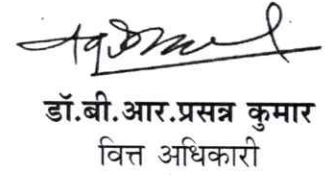 डॉ.बी.आर.प्रसन्न कुमार
वित्त अधिकारी